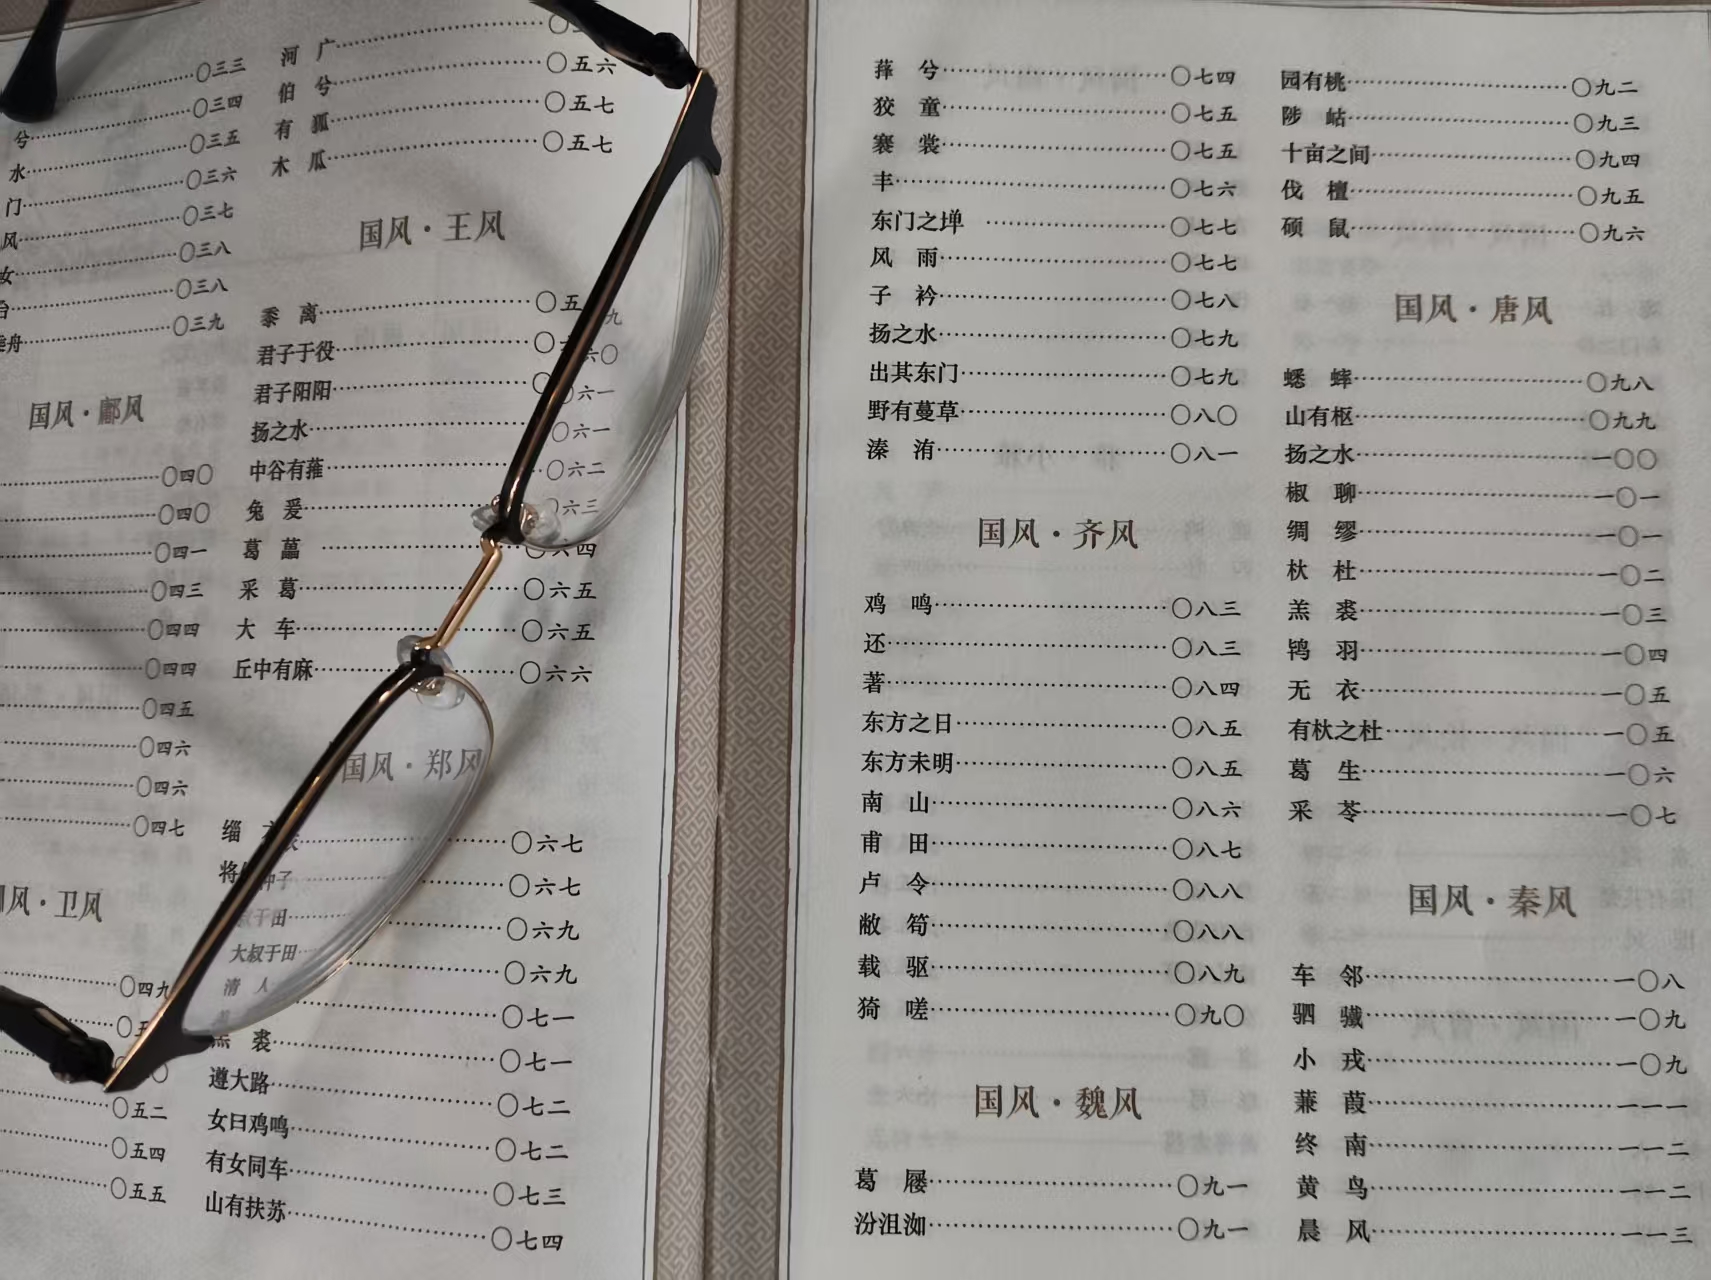 〇三三
兮 〇三四
水 〇三五
门 〇三六
风 〇三七
女 〇三八
〇三八
舟 〇三九
国风·鄘风
〇四〇
〇四〇
〇四一
〇四三
〇四四
〇四四
〇四五
〇四六
〇四六
〇四七
风·卫风
〇四九
〇五二
〇五四
〇五五
河 广
伯 兮 〇五六
有 狐 〇五七
木 瓜 〇五七
国风·王风
黍 离 〇五九
君子于役 〇六〇
君子阳阳 〇六一
扬之水 〇六一
中谷有蓷 〇六二
兔 爰 〇六三
葛 藟 〇六四
采 葛 〇六五
大 车 〇六五
丘中有麻 〇六六
国风·郑风
缁 衣 〇六七
将仲子 〇六七
叔于田 〇六九
大叔于田 〇六九
清 人 〇七一
羔 裘 〇七一
遵大路 〇七二
女曰鸡鸣 〇七二
有女同车 〇七三
山有扶苏 〇七四
萚 兮 〇七四
狡 童 〇七五
褰 裳 〇七五
丰 〇七六
东门之墠 〇七七
风 雨 〇七七
子 衿 〇七八
扬之水 〇七九
出其东门 〇七九
野有蔓草 〇八〇
溱 洧 〇八一
国风·齐风
鸡 鸣 〇八三
还 〇八三
著 〇八四
东方之日 〇八五
东方未明 〇八五
南 山 〇八六
甫 田 〇八七
卢 令 〇八八
敝 笱 〇八八
载 驱 〇八九
猗 嗟 〇九〇
国风·魏风
葛 屦 〇九一
汾沮洳 〇九一
园有桃 〇九二
陟 岵 〇九三
十亩之间 〇九四
伐 檀 〇九五
硕 鼠 〇九六
国风·唐风
蟋 蟀 〇九八
山有枢 〇九九
扬之水 一〇〇
椒 聊 一〇一
绸 缪 一〇一
杕 杜 一〇二
羔 裘 一〇三
鸨 羽 一〇四
无 衣 一〇五
有杕之杜 一〇五
葛 生 一〇六
采 苓 一〇七
国风·秦风
车 邻 一〇八
驷 驖 一〇九
小 戎 一〇九
蒹 葭 一一一
终 南 一一二
黄 鸟 一一二
晨 风 一一三